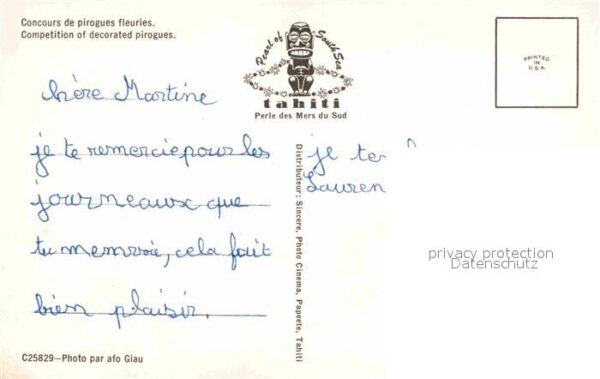 Concours de pirogues fleuries.
Competition of decorated pirogues.
Pearl of South Sea
tahiti
Perle des Mers du Sud
PRINTED
IN
U.S.A.
chère Martine
je te remercie pour les
journeaux que
tu m'envoie, cela fait
bien plaisir.
je te
Lauren
Distributeur: Sincere, Photo Cinema, Papeete, Tahiti
privacy protection
Datenschutz
C25829—Photo par afo Giau